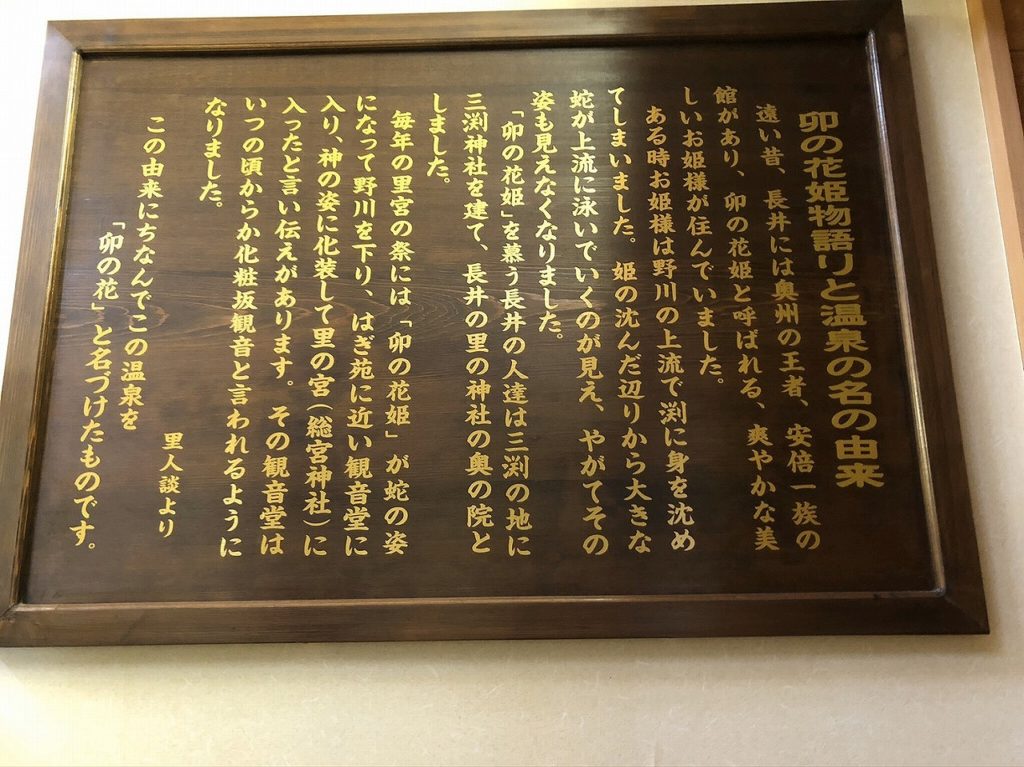 卯の花姫物語りと温泉の名の由来
遠い昔、長井には奥州の王者、安倍一族の
館があり、卯の花姫と呼ばれる、爽やかな美
しいお姫様が住んでいました。
ある時お姫様は野川の上流で渕に身を沈め
てしまいました。姫の沈んだ辺りから大きな
蛇が上流に泳いでいくのが見え、やがてその
姿も見えなくなりました。
「卯の花姫」を慕う長井の人達は三渕の地に
三渕神社を建て、長井の里の神社の奥の院と
しました。
毎年の里宮の祭には「卯の花姫」が蛇の姿
になって野川を下り、はぎ苑に近い観音堂に
入り、神の姿に化装して里の宮(総宮神社)に
入ったと言い伝えがあります。その観音堂は
いつの頃からか化粧坂観音と言われるように
なりました。
里人談より
この由来にちなんでこの温泉を
「卯の花」と名づけたものです。